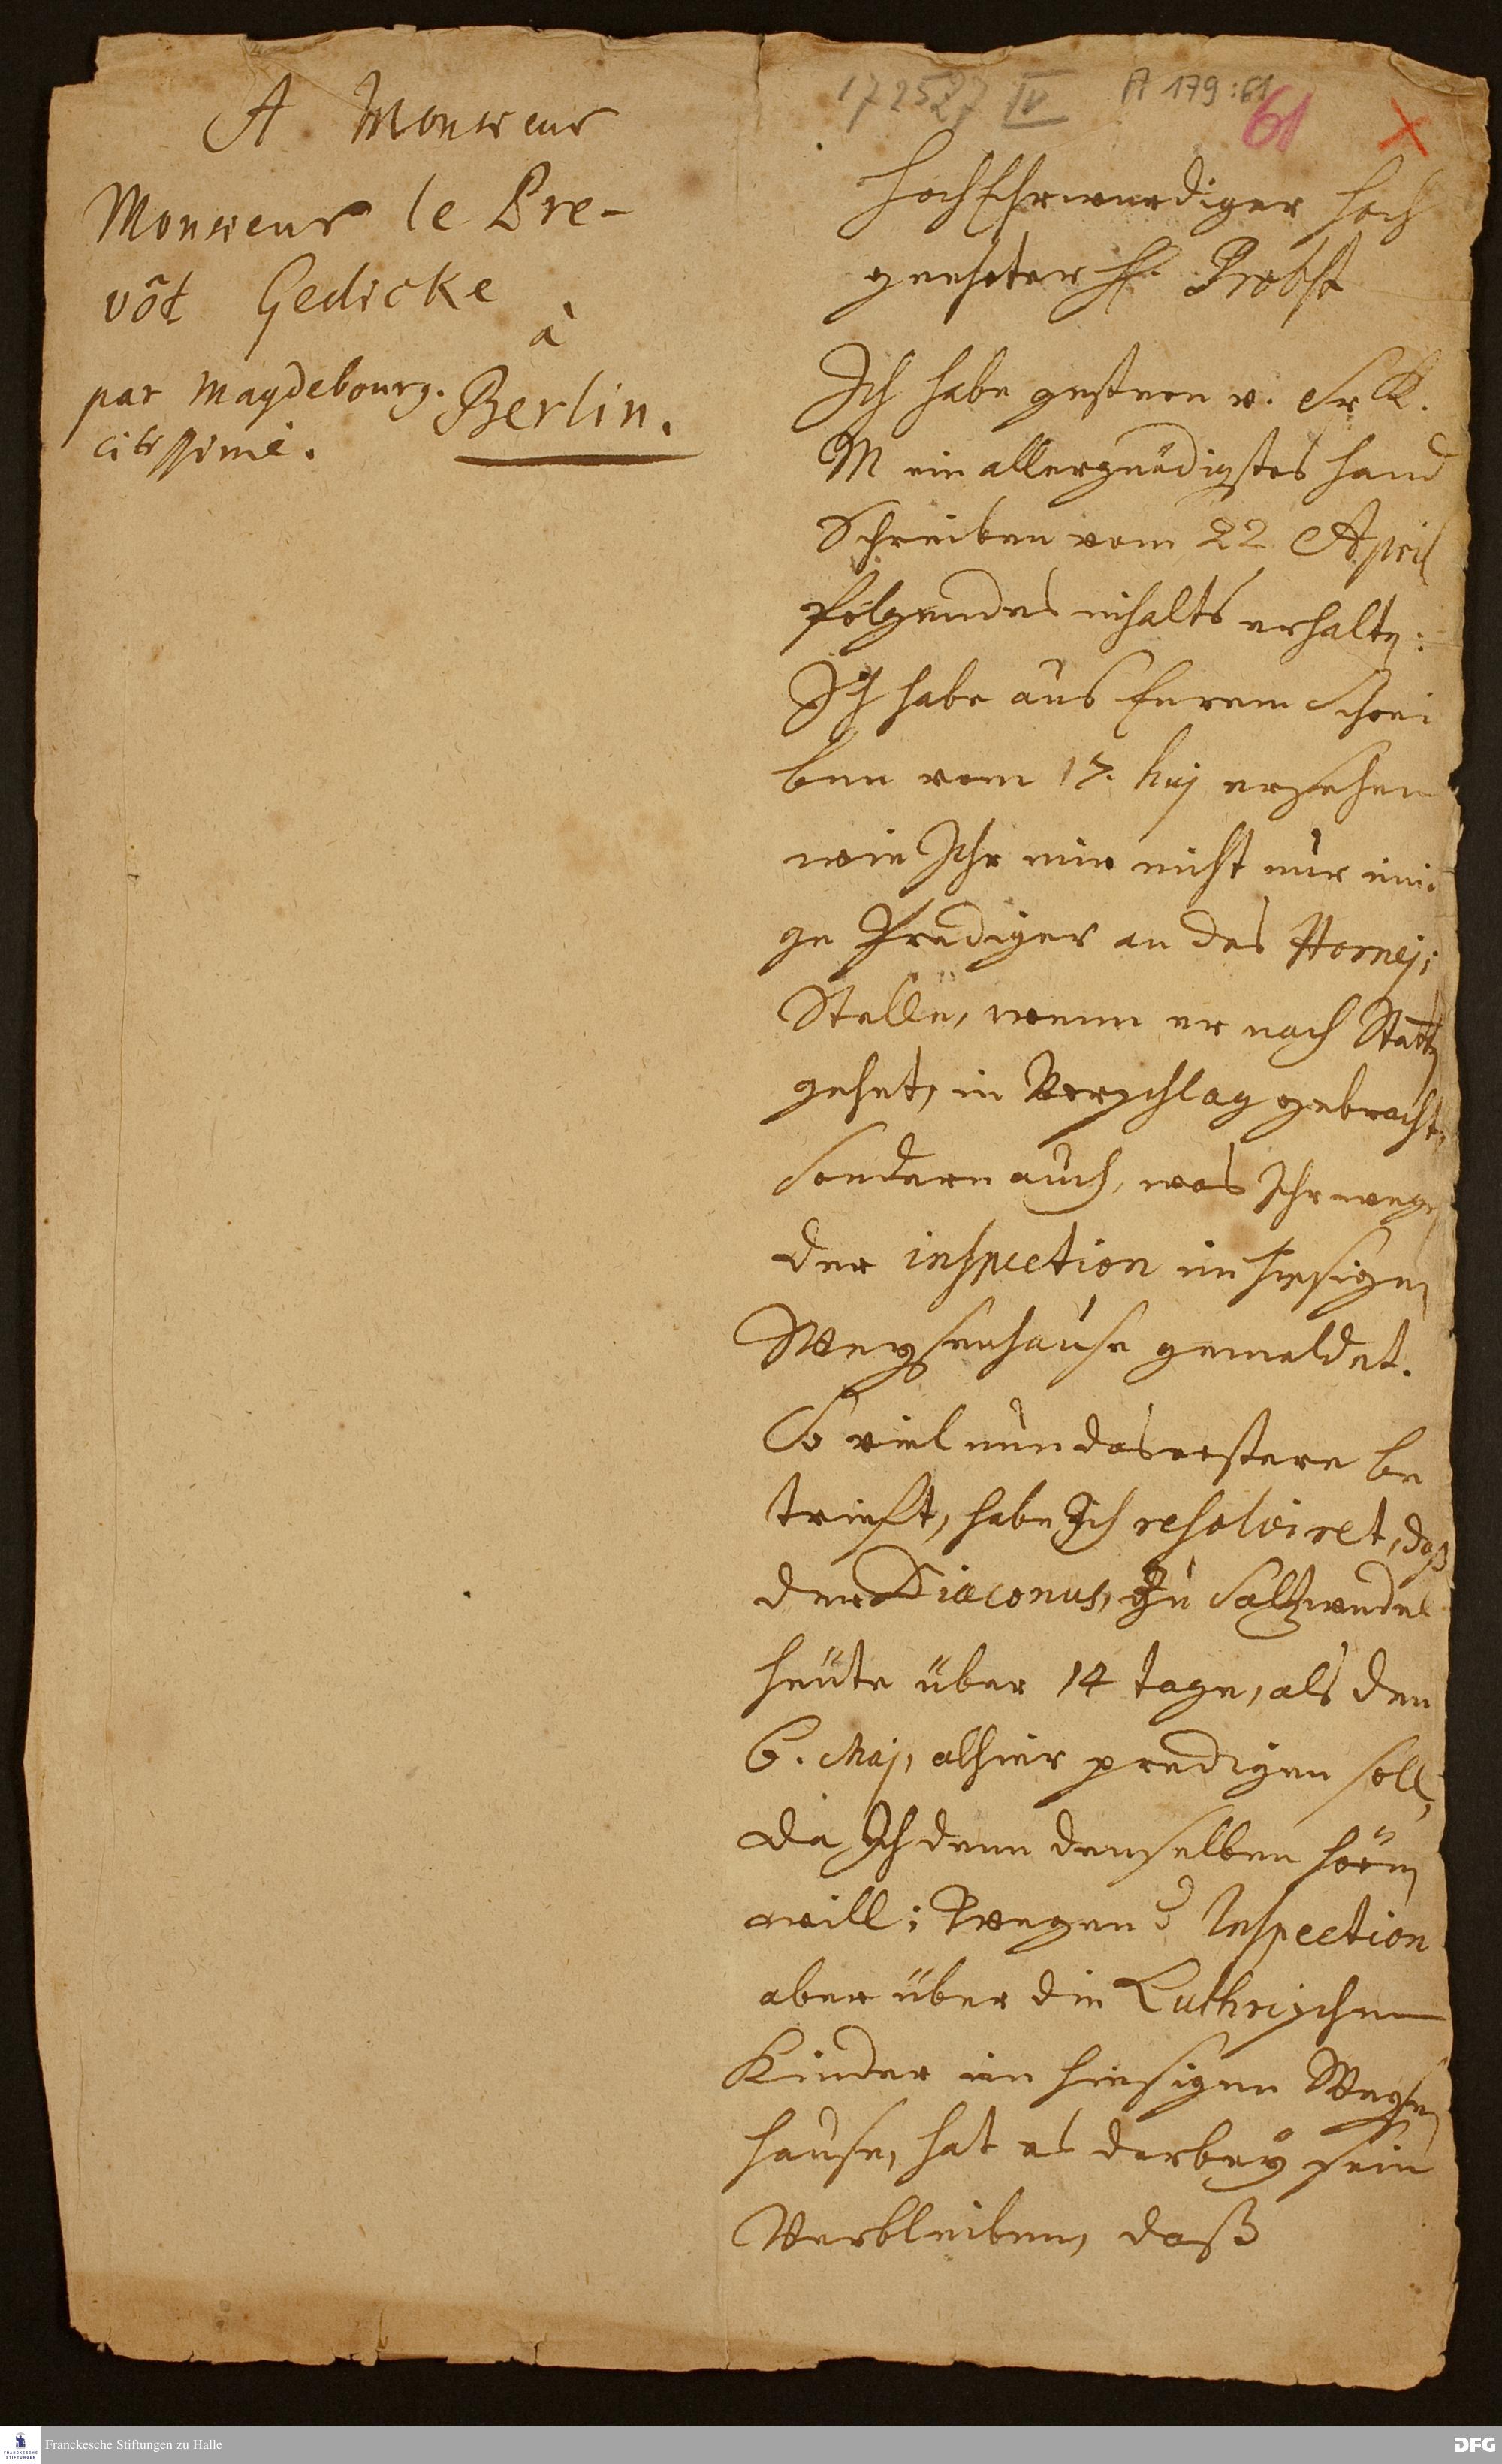 A Monsieur
Monsieur le Pre-
vôt Gedicke
à
par Magdebourg. Berlin.
citissimè.
172527 IV A 179:61
61
HochEhrwurdiger Hoch
geehrter H. Probst
Ich habe gestern v. Sr K.
M ein allergnädigstes Hand
Schreiben vom 22 April
folgendes inhalts erhalten:
Ich habe aus Eurem Schrei
ben vom 17. huj ersehen
wie Ihr mir nicht nur eini
ge Prediger an des Hornej
Stelle, wenn er nach
gehet, in Vorschlag gebracht,
sondern auch, was Ihr wegen
der inspection im hiesigen
Weysenhause gemeldet.
So viel nun das erstere be
trieft, habe Ich resolviret, daß
der Diaconus, zu Saltzwedel
heüte über 14 tage, als den
6. Maj, alhier predigen soll,
da Ich denn denselben hören
will; Wegen d Inspection
aber über die Luthrischen
Kinder im hiesigen Weysen
hause, hat es darbey sein
Verbleiben, daß
Franckesche Stiftungen zu Halle
DFG